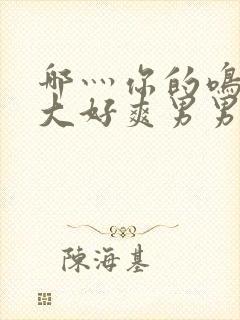 哪灬你的鳴
大好爽男男
陳海基